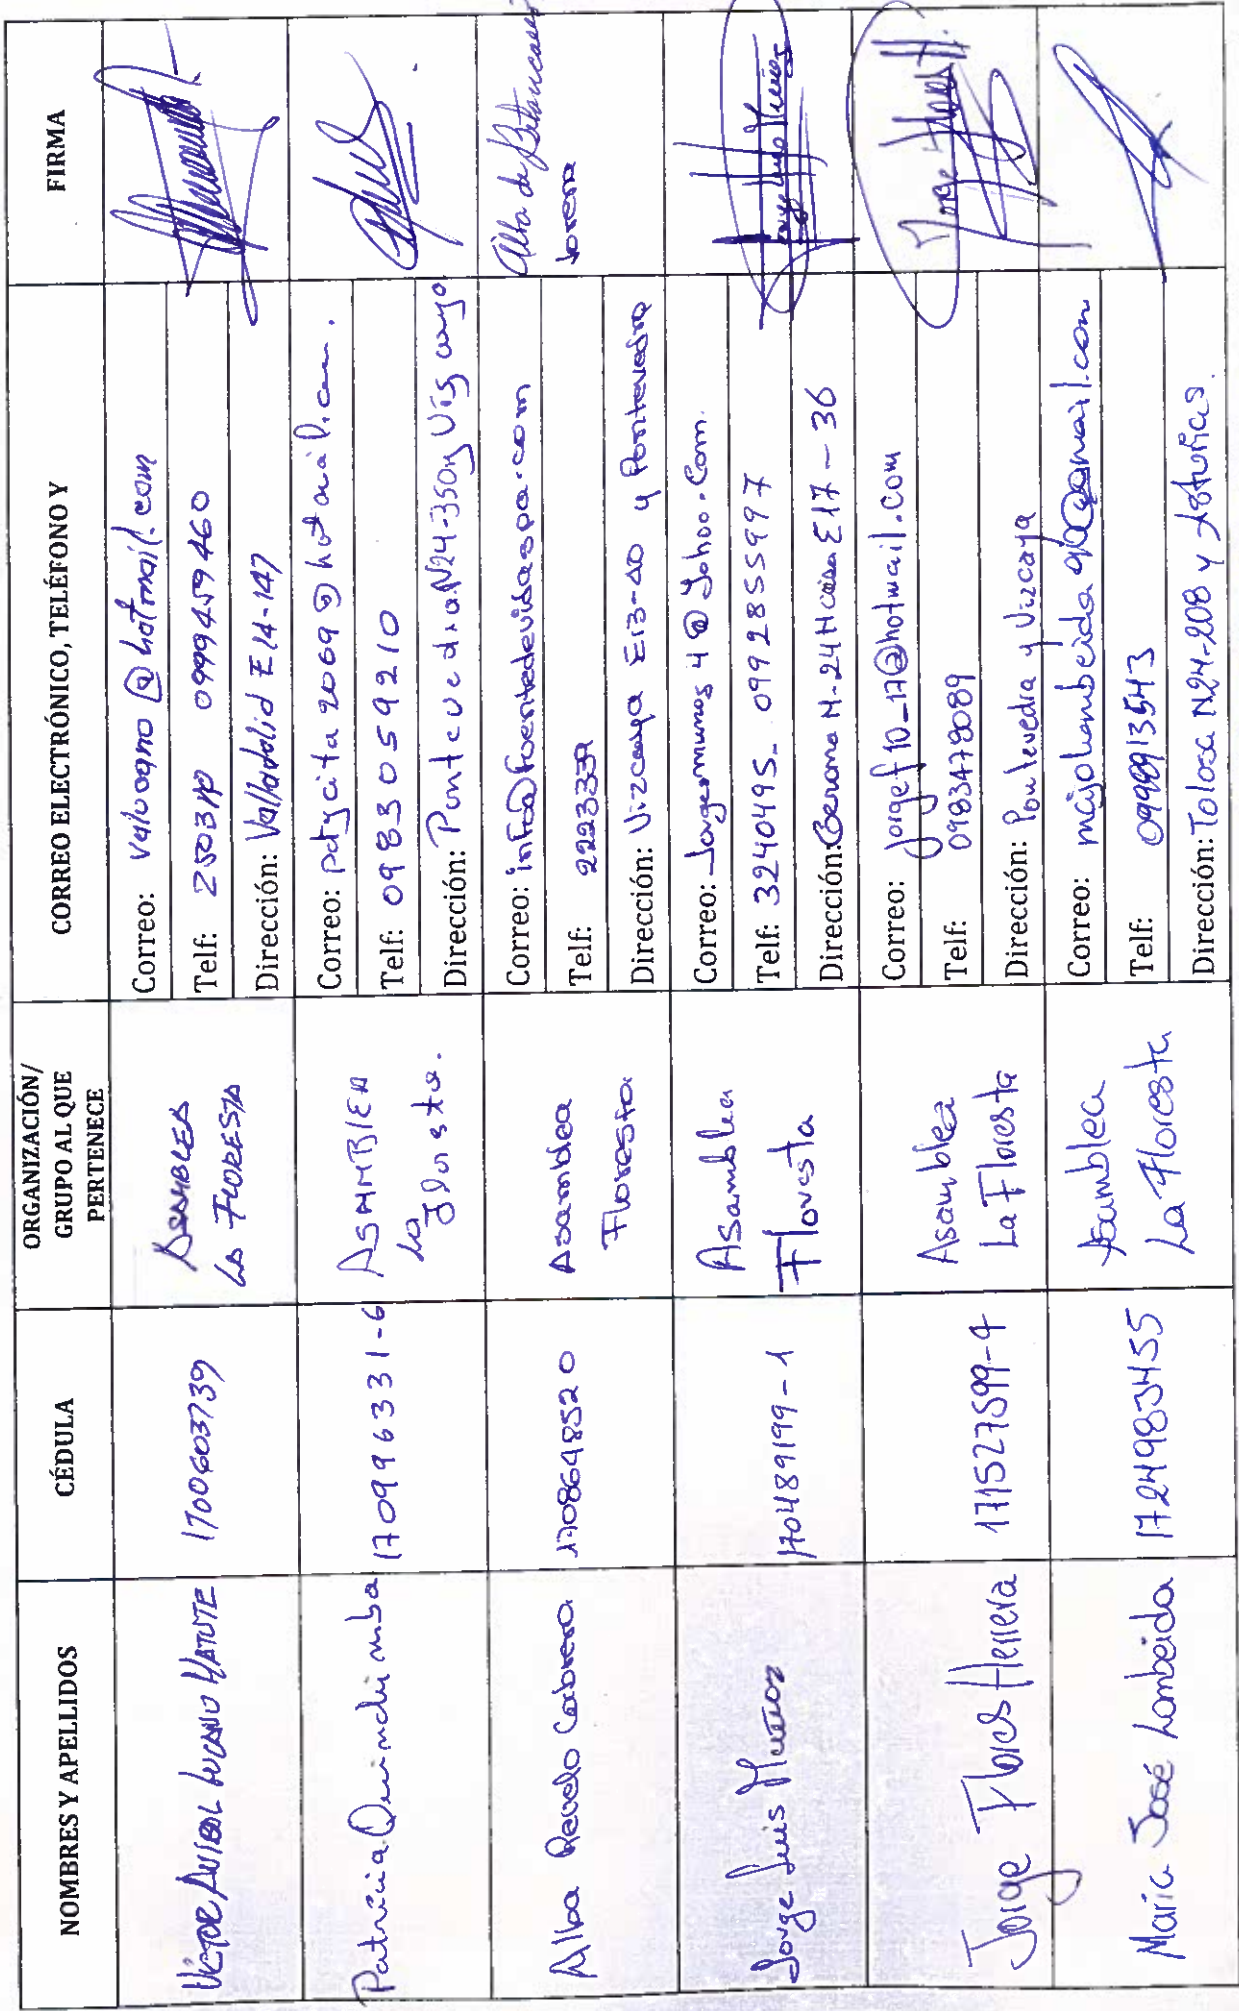 NOMBRES Y APELLIDOS
CÉDULA
ORGANIZACIÓN/
GRUPO AL QUE
PERTENECE
CORREO ELECTRÓNICO, TELÉFONO Y
FIRMA
VÍCTOR ANIBAL LUCANO MATUTE
1700603739
ASAMBLEA
LA FLORESTA
Correo: valuogno@hotmail.com
Telf: 0999459460
Dirección: Valladolid E14-147
Patricia Quinchimba
170996331-6
ASAMBLEA
la Floresta.
Correo: patycita2069@hotmail.com.
Telf: 0983059210
Dirección: Pontevedra N24-350 y Vizcaya
Alba Revelo Cabrera
1708648520
Asamblea
Floresta
Correo: info@fuentedevidaspa.com
Telf: 2223339
Dirección: Vizcaya E13-40 y Pontevedra
Alba de
Jorge Luis Muñoz
170489199-1
Asamblea
Floresta
Correo: Jorgemunos4@Yahoo.Com.
Telf: 3240495- 0992855997
Dirección: N-24H casa E17-36
Jorge Luis Muñoz
Jorge Flores Herrera
171527599-4
Asamblea
La Floresta
Correo: jorgef10_17@hotmail.com
Telf: 0983478089
Dirección: Pontevedra y Vizcaya
Jorge Flores H.
María José Lombeida
1724983455
Asamblea
La Floresta
Correo: majolombeida96@gmail.com
Telf: 0999913543
Dirección: Tolosa N24-208 y Asturias.